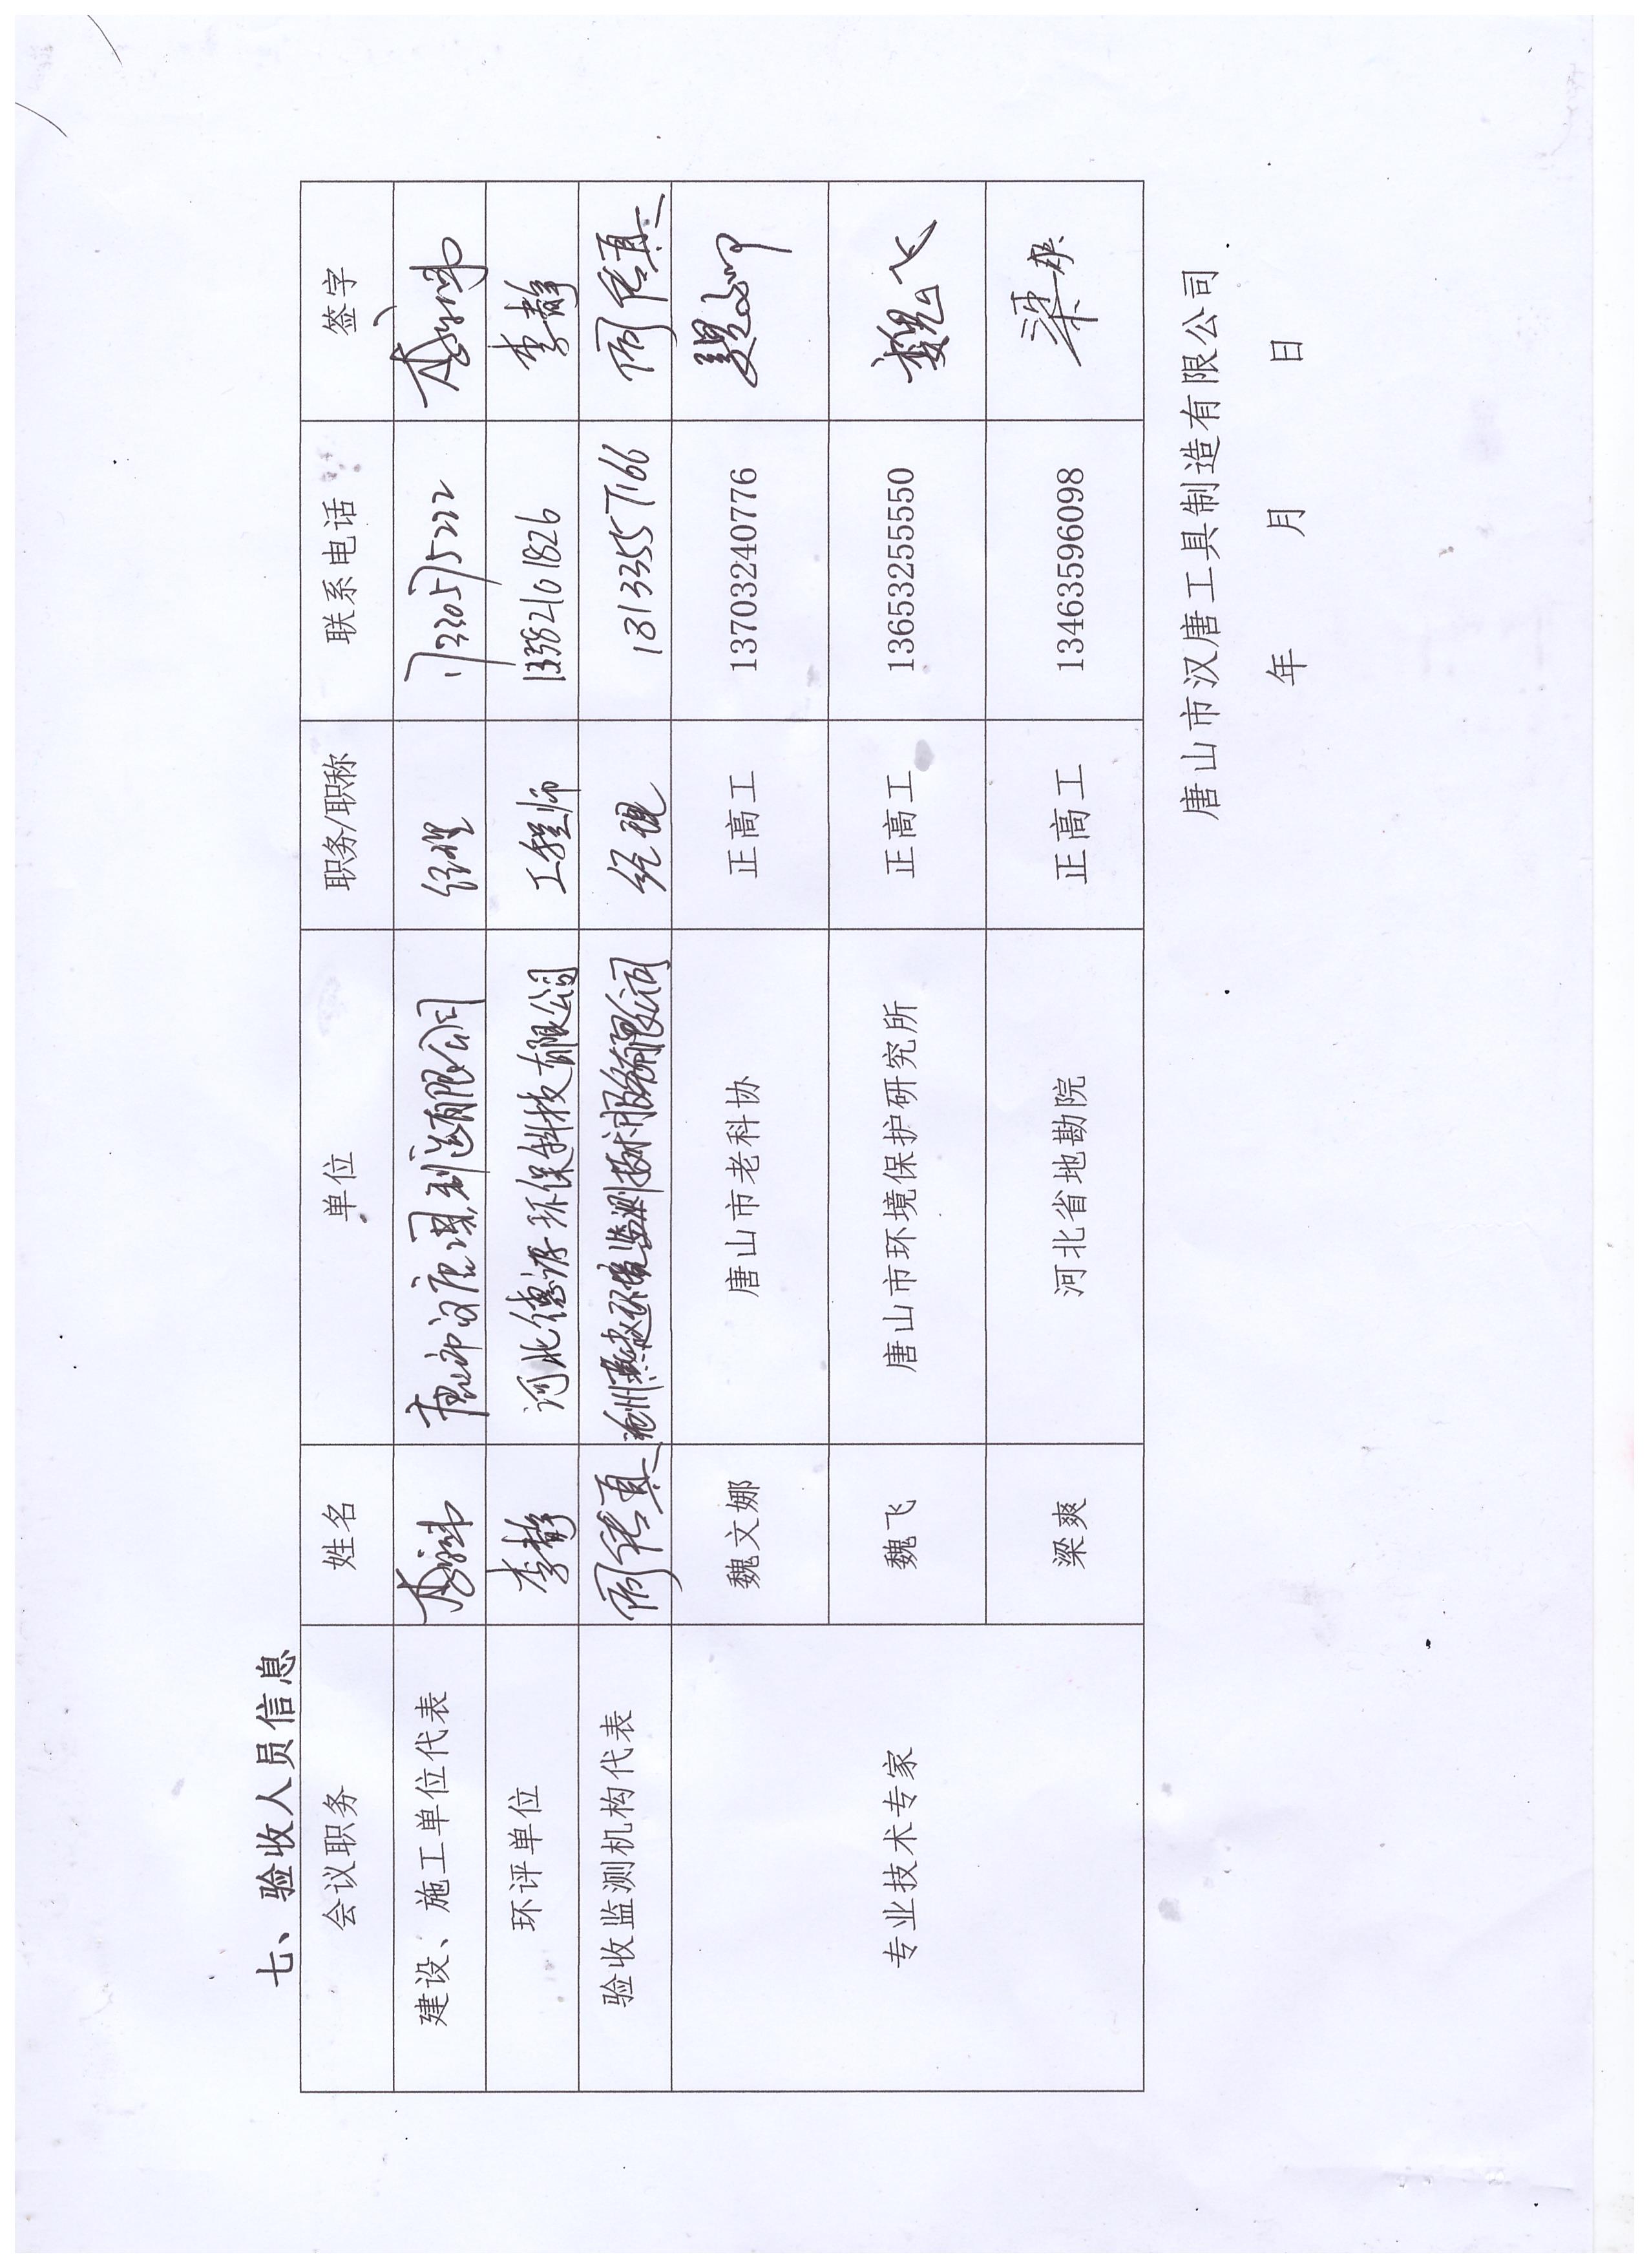 七、验收人员信息
会议职务 姓名 单位 职务/职称 联系电话 签字
建设、施工单位代表 唐山市汉唐工具制造有限公司 经理
环评单位 李静 河北德源环保科技有限公司 工程师 13582101826 李静
验收监测机构代表 沧州燕赵环境监测技术服务有限公司 经理 18133557166
专业技术专家
魏文娜 唐山市老科协 正高工 13703240776
魏飞 唐山市环境保护研究所 正高工 13653255550 魏飞
梁爽 河北省地勘院 正高工 13463596098 梁爽
唐山市汉唐工具制造有限公司
年 月 日